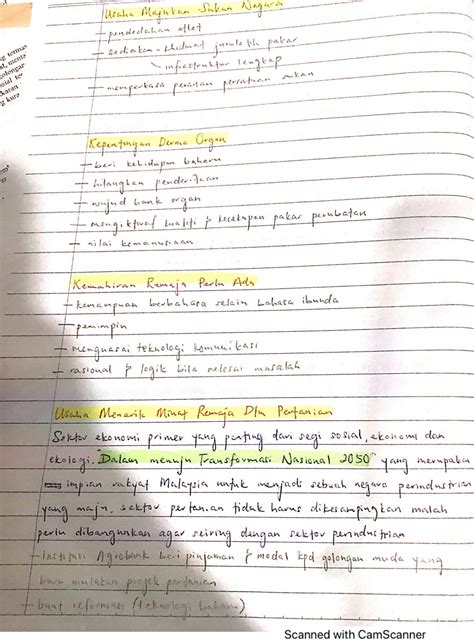 Usaha Majukan Sukan Negara
- pendedahan atlet
- sediakan khidmat jurulatih pakar
infrastruktur lengkap
- memperkasa peranan persatuan sukan
Kepentingan Derma Organ
- beri kehidupan baharu
- hilangkan penderitaan
- wujud bank organ
- mengiktiraf kualiti & kecekapan pakar perubatan
- nilai kemanusiaan
Kemahiran Remaja Perlu Ada
- kemampuan berbahasa selain bahasa ibunda
- pemimpin
- menguasai teknologi komunikasi
- rasional & logik bila selesai masalah
Usaha Menarik Minat Remaja Dlm Pertanian
Sektor ekonomi primer yang penting dari segi sosial, ekonomi dan
ekologi. "Dalam menuju Transformasi Nasional 2050" yang merupakan
impian rakyat Malaysia untuk menjadi sebuah negara perindustrian
yang maju, sektor pertanian tidak harus dikesampingkan malah
perlu dibangunkan agar seiring dengan sektor perindustrian
- Institusi Agrobank beri pinjaman & modal kpd golongan muda yang
baru mulakan projek pertanian
- buat reformasi (teknologi baharu)
Scanned with CamScanner